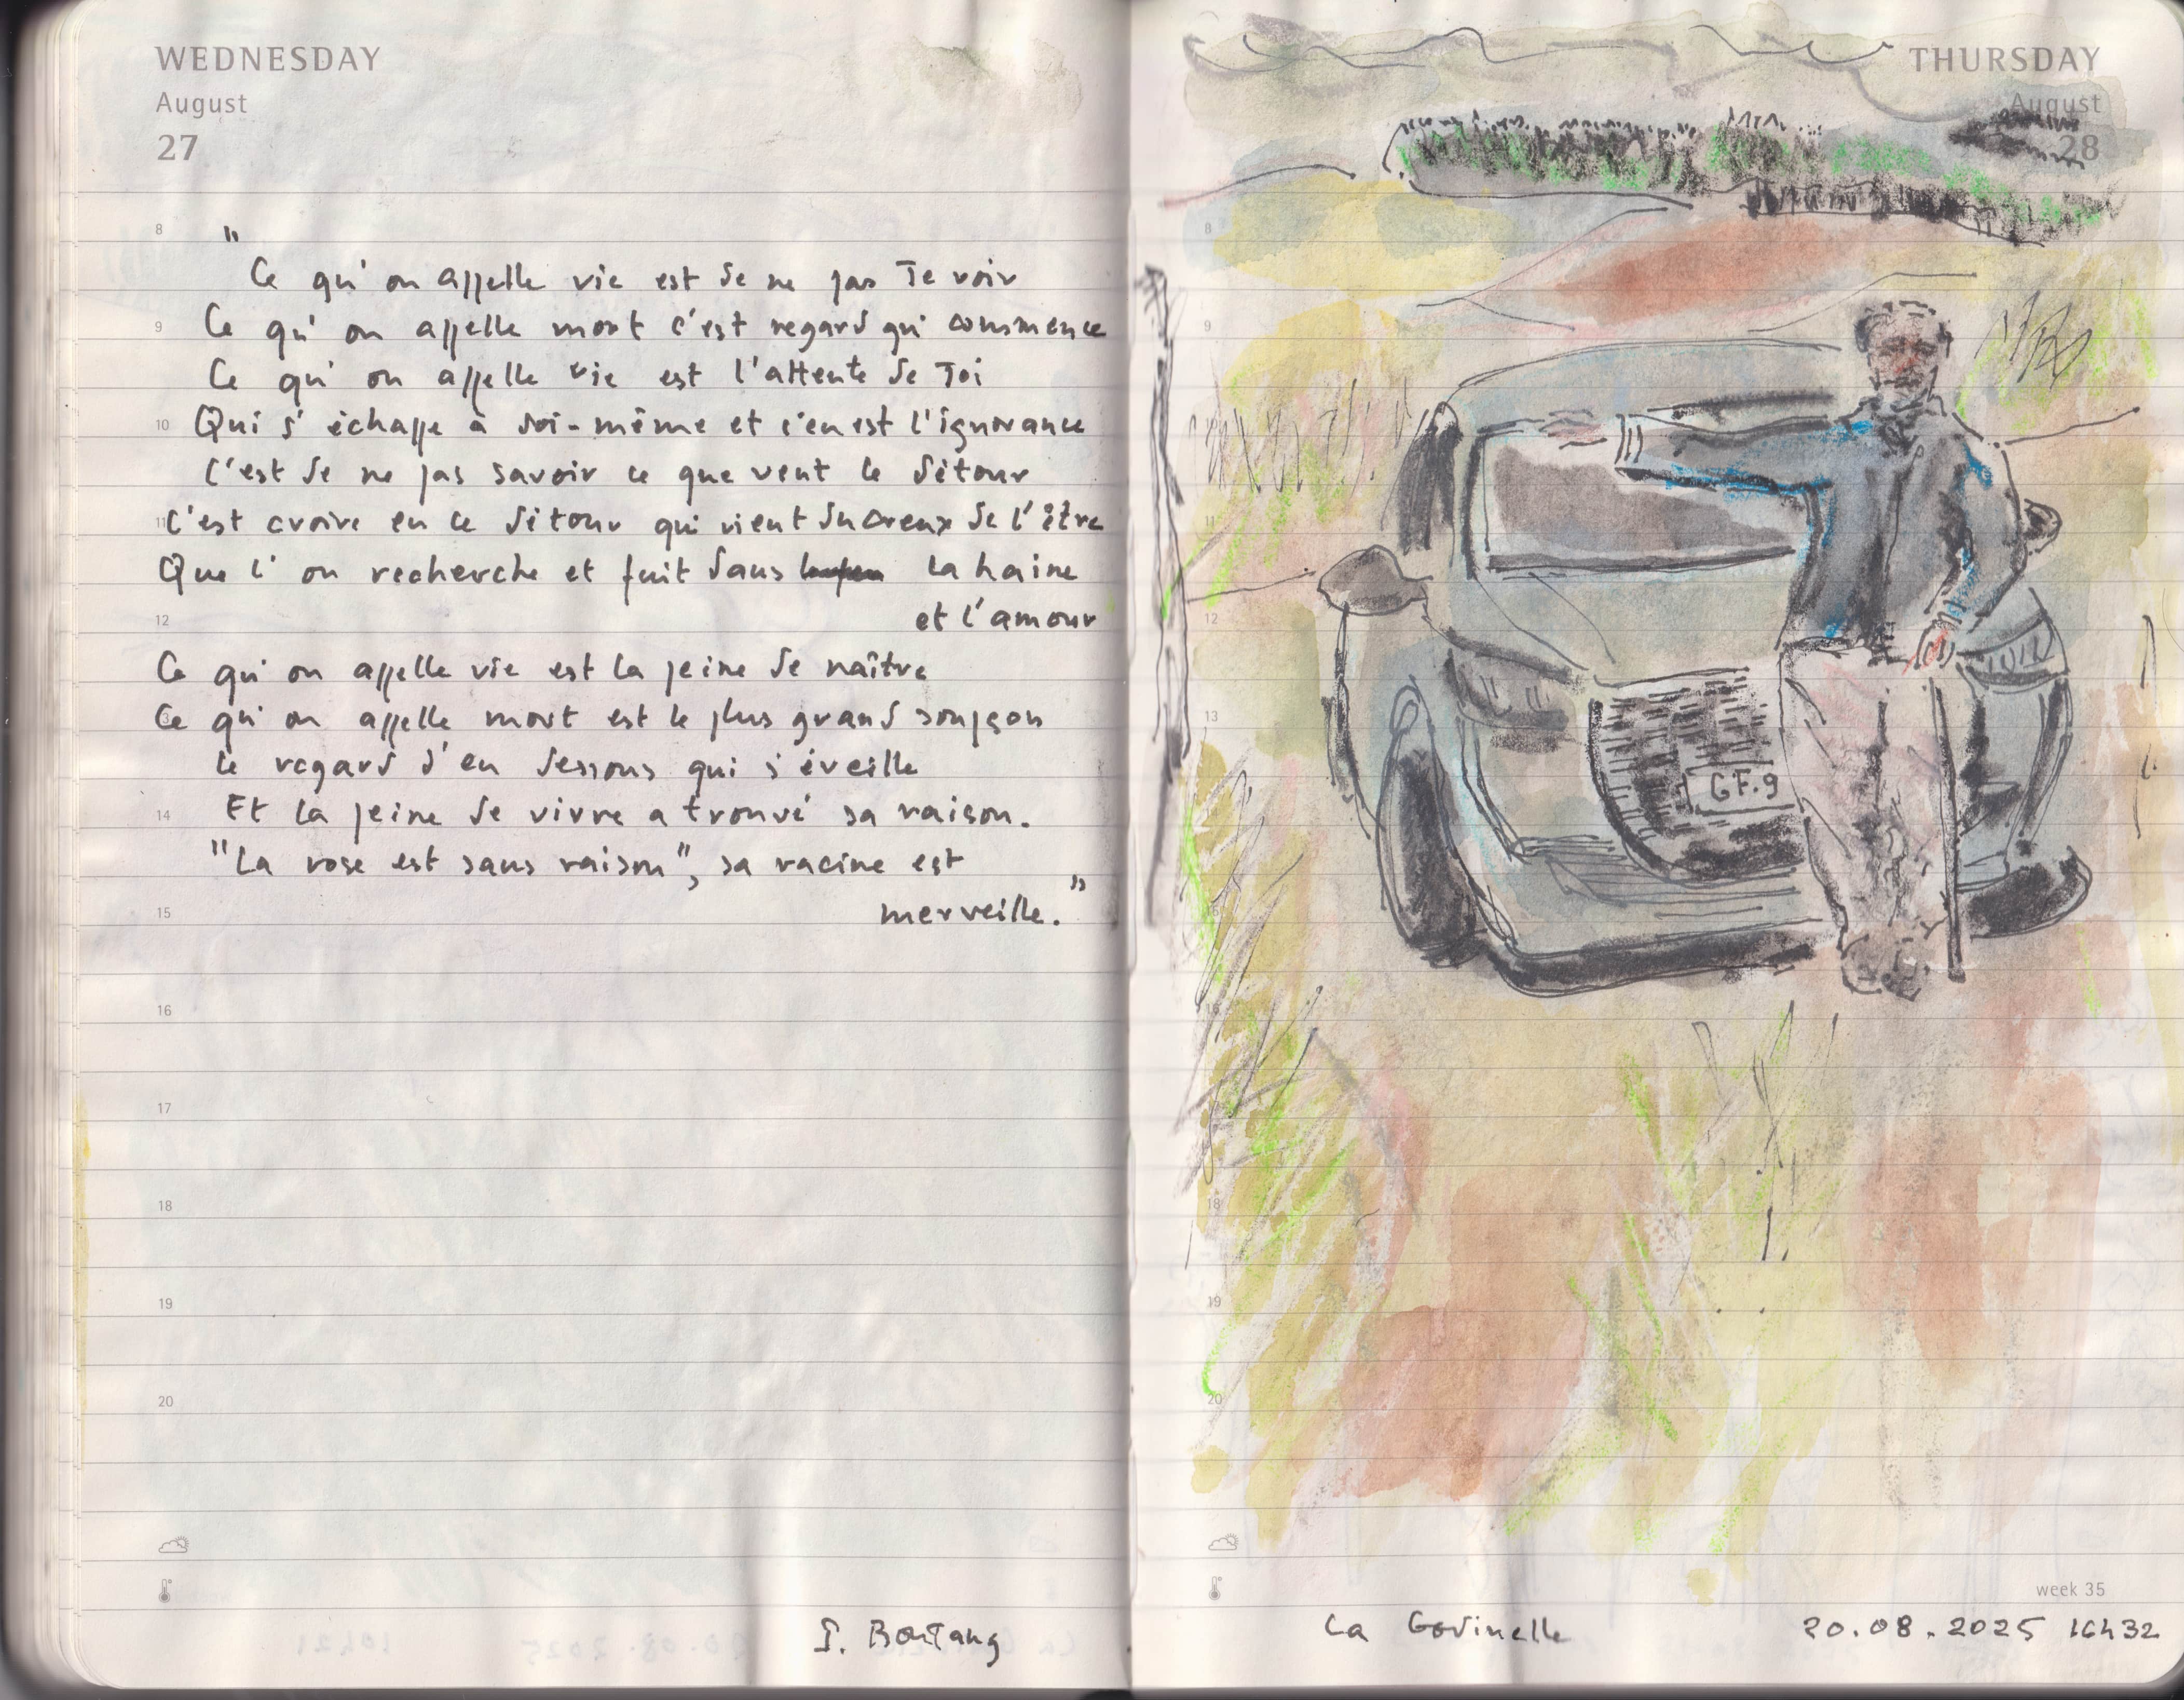 WEDNESDAY
August
27
8
"
Ce qu'on appelle vie est de ne pas Te voir
9
Ce qu'on appelle mort c'est regard qui commence
Ce qu'on appelle vie est l'attente de Toi
10
Qui s'échappe à soi-même et c'en est l'ignorance
C'est de ne pas savoir ce que veut le détour
11
C'est croire en ce détour qui vient du creux de l'être
Que l'on recherche et fuit dans la haine
12
et l'amour
Ce qu'on appelle vie est la peine de naître
13
Ce qu'on appelle mort est le plus grand soupçon
Le regard d'en dessous qui s'éveille
14
Et la peine de vivre a trouvé sa raison.
"La rose est sans raison", sa racine est
15
merveille."
16
17
18
19
20
P. Boutang
THURSDAY
August
28
8
9
11
12
13
GF.9
15
16
18
19
20
week 35
La Godinelle
20.08.2025 16h32